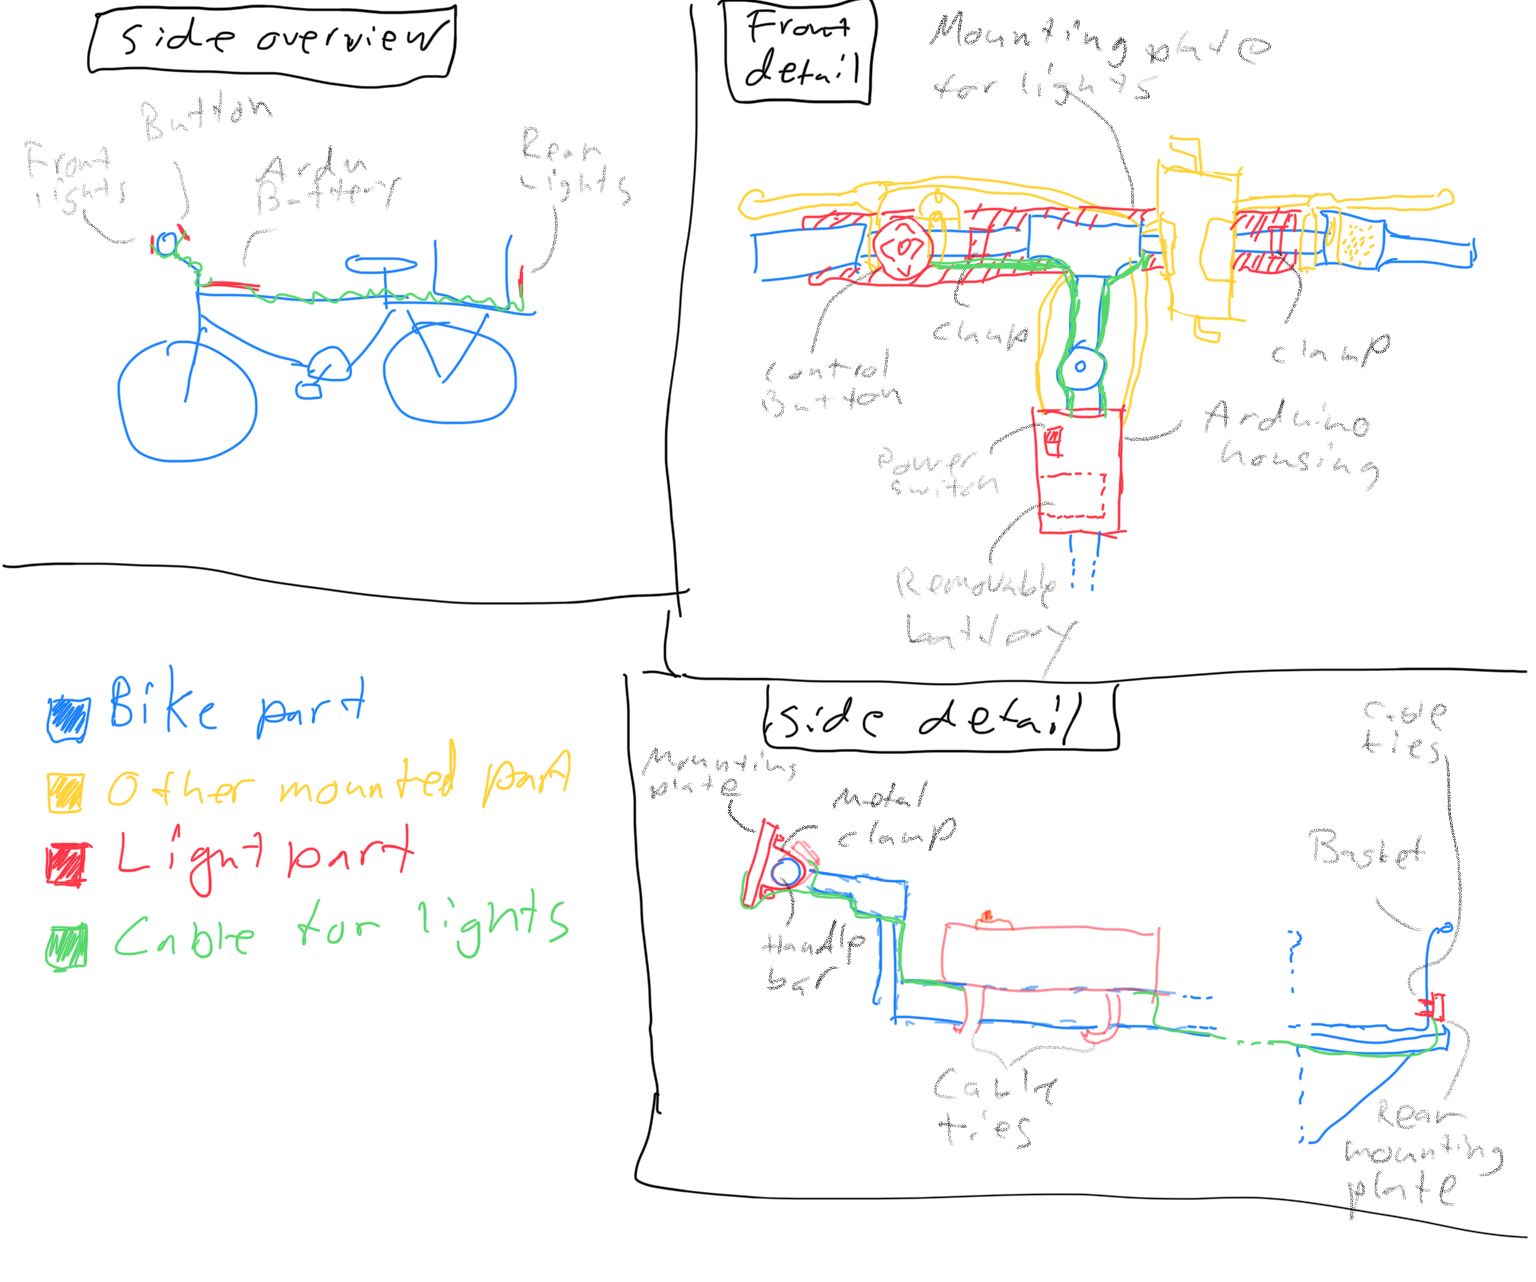 side overview
Button
Front
lights
Ardu
Battery
Rear
Lights
Front
detail
Mounting plate
for lights
clamp
clamp
Control
Button
Arduino
housing
Power
switch
Removable
battory
Bike part
Other mounted part
Light part
Cable for lights
side detail
Cable
ties
Mounting
plate
Metal
clamp
Basket
Handle
bar
Cable
ties
Rear
mounting
plate